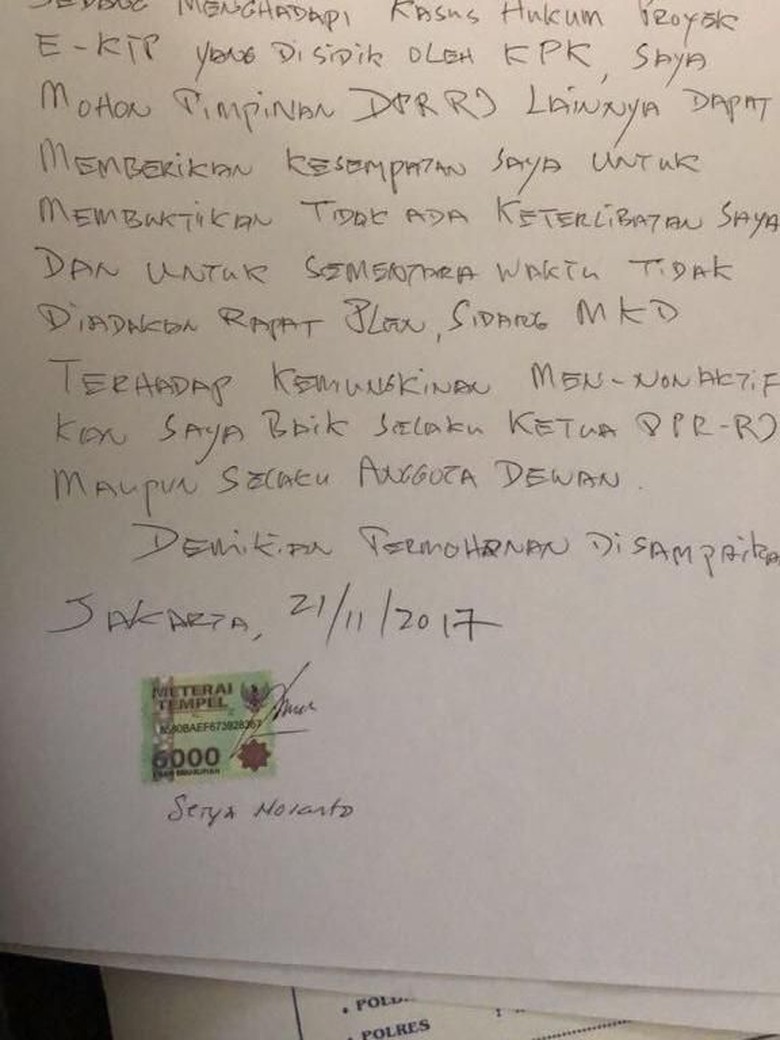 SEDANG MENGHADAPI KASUS HUKUM PROYEK
E-KTP YANG DISIDIK OLEH KPK, SAYA
MOHON PIMPINAN DPR RI LAINNYA DAPAT
MEMBERIKAN KESEMPATAN SAYA UNTUK
MEMBUKTIKAN TIDAK ADA KETERLIBATAN SAYA
DAN UNTUK SEMENTARA WAKTU TIDAK
DIADAKAN RAPAT PLENO, SIDANG MKD
TERHADAP KEMUNGKINAN MEN-NONAKTIF
KAN SAYA BAIK SELAKU KETUA DPR-RI
MAUPUN SELAKU ANGGOTA DEWAN.
DEMIKIAN PERMOHONAN DISAMPAIKA
JAKARTA, 21/11/2017
METERAI
TEMPEL
6000
Setya Novanto
POLRES